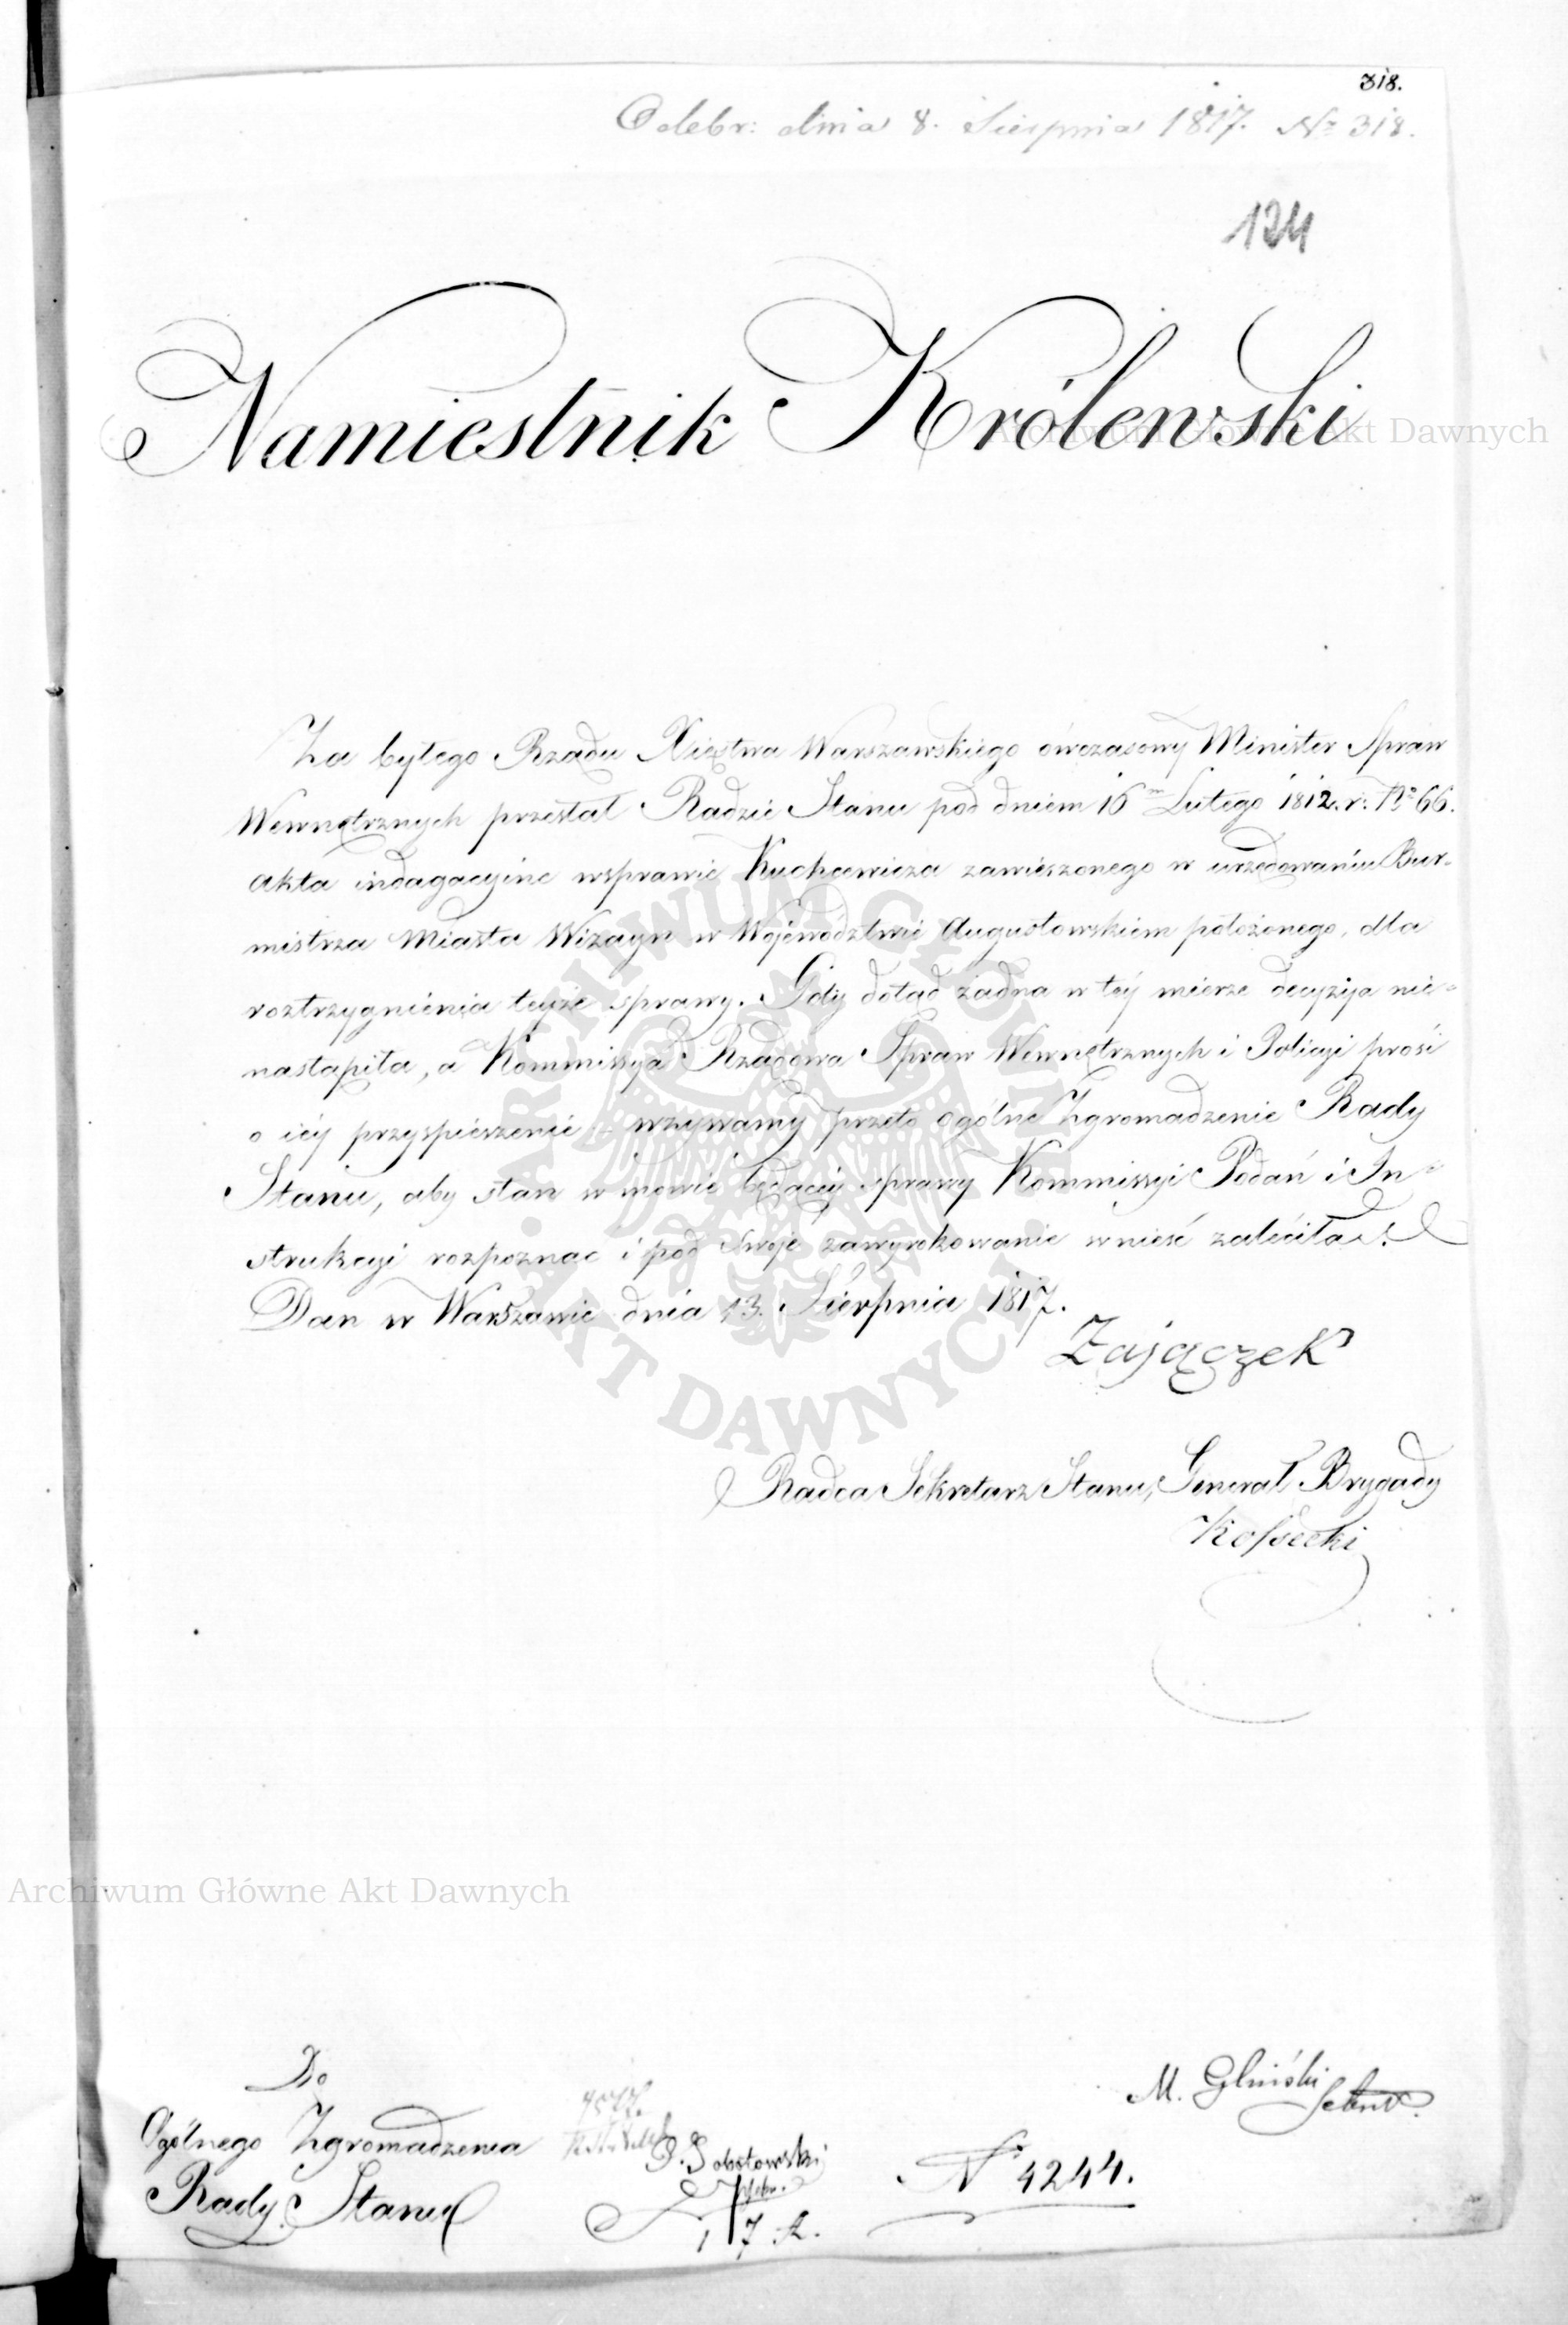 318.
Odebr: dnia 8. Sierpnia 1817. No 318.
124
Namiestnik Królewski
Archiwum Główne Akt Dawnych
Za byłego Rządu Xięstwa Warszawskiego ówczasowy Minister Spraw
Wewnętrznych przesłał Radzie Stanu pod dniem 16m Lutego 1812. r. No 66.
akta indagacyine wsprawie Kuchcewicza zawieszonego w urzędowaniu Bur-
mistrza Miasta Wizayn w Wojewodztwie Augustowskiem położonego, dla
roztrzygnienia teyże sprawy. Gdy dotąd żadna w téy mierze decyzija nie-
nastąpiła, a Kommissya Rządowa Spraw Wewnętrznych i Policyi prosi
o iéy przyspieszenie – wzywamy przeto Ogólne Zgromadzenie Rady
Stanu, aby stan w mowie będącéy sprawy Kommissyi Podań i In-
strukcyi rozpoznac i pod swoje zawyrokowanie wnieść zaleciła.
Dan w Warszawie dnia 13. Sierpnia 1817.
Zajączek
Radca Sekretarz Stanu, Generał Brygady
Kossecki
ARCHIWUM GŁÓWNE AKT DAWNYCH
Archiwum Główne Akt Dawnych
Do
Ogólnego Zgromadzenia
Rady Stanu
M. Gliński
Sobolewski
17
No 4244.